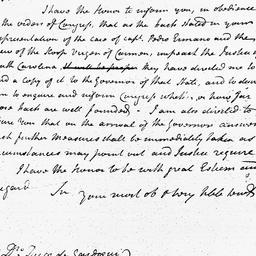 I have the Honor to inform you, in obedience
the orders of Congress, that as the facts stated in your
representation of the case of Capt. Pedro Esmans and the
ew of the Sloop Virgen of Carmen, impeach the Justice of
uth Carolina they have directed me to
nd a copy of it to the Governor of that State, and to de
m to enquire and inform Congress whether, or how far
ore facts are well founded - I am also directed to
sure you that on the arrival of the Governors answer
such further Measures shall be immediately taken as
circumstances may point out and Justice require
I have the Honor to be with great Esteem and
regard Sir your most ob. & very hble Servt